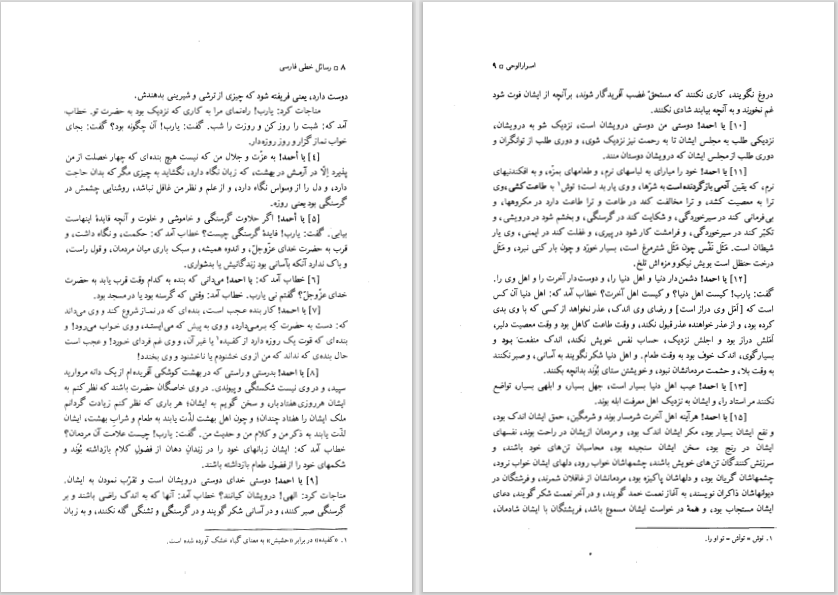 ۸ □ رسائل خطی فارسی
دوست دارد، یعنی فریفته شود که چیزی از ترشی و شیرینی بدهندش.
مناجات کرد: یارب! راه‌نمای مرا به کاری که نزدیک بود به حضرت تو. خطاب
آمد که: شبت را روز کن و روزت را شب. گفت: یارب! آن چگونه بود؟ گفت: بجای
خواب نماز گزار و روز روزه‌دار.
[۴] یا أحمد! به عزّت و جلال من که نیست هیچ بنده‌ای که چهار خصلت از من
پذیرد إلّا در آرمش در بهشت، که زبان نگاه دارد، نگشاید به چیزی مگر که بدان حاجت
دارد، و دل را از وسواس نگاه دارد، و از علم و نظر من غافل نباشد، روشنایی چشمش در
گرسنگی بود یعنی روزه.
[۵] یا أحمد! اگر حلاوت گرسنگی و خاموشی و خلوت و آنچه فایدهٔ اینهاست
بیابی. گفت: یارب! فایدهٔ گرسنگی چیست؟ خطاب آمد که: حکمت، و نگاه داشت، و
قرب به حضرت خدای عزّوجلّ، و اندوه همیشه، و سبک باری میان مردمان، و قول راست،
و باک ندارد آنکه بآسانی بود زندگانیش یا بدشواری.
[۶] خطاب آمد که: یا احمد! می‌دانی که بنده به کدام وقت قرب یابد به حضرت
خدای عزّوجلّ؟ گفتم نی یارب. خطاب آمد: وقتی که گرسنه بود یا در مسجد بود.
[۷] یا احمد! کار بنده عجب است، بنده‌ای که در نماز شروع کند و وی می‌داند
که: دست به حضرت که برمی‌دارد، و وی به پیش که می‌ایستد، و وی خواب می‌رود! و
بنده‌ای که قوت یک روزه دارد از کفیده۱ یا غیر آن، و وی غم فردای خورد! و عجب است
حال بنده‌ای که نداند که من از وی خشنودم یا ناخشنود و وی بخندد!
[۸] یا احمد! بدرستی و راستی که در بهشت کوشکی آفریده‌ام از یک دانه مروارید
سپید، و در وی نیست شکستگی و پیوندی. در وی خاصگان حضرت باشند که نظر کنم به
ایشان هر روزی هفتاد بار، و سخن گویم به ایشان؛ هر باری که نظر کنم زیادت گردانم
ملک ایشان را هفتاد چندان؛ و چون اهل بهشت لذّت یابند به طعام و شرابِ بهشت، ایشان
لذّت یابند به ذکر من و کلام من و حدیث من. گفت: یارب! چیست علامت آن مردمان؟
خطاب آمد که: ایشان زبانهای خود را در زندانِ دهان از فضولِ کلام بازداشته بُوَند و
شکمهای خود را از فضول طعام بازداشته باشند.
[۹] یا احمد! دوستی خدای دوستی درویشان است و تقرّب نمودن به ایشان.
مناجات کرد: الهی! درویشان کیانند؟ خطاب آمد: آنها که به اندک راضی باشند و بر
گرسنگی صبر کنند، و در آسانی شکر گویند و در گرسنگی و تشنگی گله نکنند، و به زبان
۱. «کفیده» در برابر «حشیش» به معنای گیاه خشک آورده شده است.
اسرارالوحی □ ۹
دروغ نگویند، کاری نکنند که مستحقّ غضب آفریدگار شوند، بر آنچه از ایشان فوت شود
غم نخورند و به آنچه بیابند شادی نکنند.
[۱۰] یا احمد! دوستی من دوستی درویشان است، نزدیک شو به درویشان،
نزدیکی طلب به مجلس ایشان تا به رحمت نیز نزدیک شوی، و دوری طلب از توانگران و
دوری طلب از مجلس ایشان که درویشان دوستان منند.
[۱۱] یا احمد! خود را میارای به لباسهای نرم، و طعامهای بمزّه، و به افکندنیهای
نرم، که یقین آدمی بازگردنده است به شرّها، و وی یار بد است؛ توش۱ به طاعت کشی، وی
ترا به معصیت کشد، و ترا مخالفت کند در طاعت و ترا طاعت دارد در مکروهها، و
بی‌فرمانی کند در سیرخوردگی، و شکایت کند در گرسنگی، و بخشم شود در درویشی، و
تکبّر کند در سیرخوردگی، و فرامشت کار شود در پیری، و غفلت کند در ایمنی، وی یار
شیطان است. مَثَل نَفْس چون مَثَل شترمرغ است، بسیار خورَد و چون بار کنی نبرد، و مَثَل
درخت حنظل است بویش نیکو و مزه‌اش تلخ.
[۱۲] یا احمد! دشمن‌دار دنیا و اهل دنیا را، و دوست‌دار آخرت را و اهل وی را.
گفت: یارب! کیست اهل دنیا؟ و کیست اهل آخرت؟ خطاب آمد که: اهل دنیا آن کس
است که [اَمَل وی دراز است] و رضای وی اندک، عذر نخواهد از کسی که با وی بدی
کرده بود، و از عذر خواهنده عذر قبول نکند، و وقت طاعت کاهل بود و وقت معصیت دلیر،
اَمَلش دراز بود و اجلش نزدیک، حساب نفس خویش نکند، اندک منفعت بود و
بسیارگوی، اندک خوف بود به وقت طعام. و اهل دنیا شکر نگویند به آسانی، و صبر نکنند
به وقت بلا، و حشمت مردمانشان نبود، و خویشتن ستای بُوَند بدانچه بکنند.
[۱۳] یا احمد! عیب اهل دنیا بسیار است، جهل بسیار، و ابلهی بسیار، تواضع
نکنند مر استاد را، و ایشان به نزدیک اهل معرفت ابله بوند.
[۱۵] یا احمد! هرآینه اهل آخرت شرمسار بوند و شرمگین، حمق ایشان اندک بود،
و نفع ایشان بسیار بود، مکر ایشان اندک بود، و مردمان ازیشان در راحت بوند، نفسهای
ایشان در رنج بود، سخن ایشان سنجیده بود، محاسبان تن‌های خود باشند، و
سرزنش کنندگان تن‌های خویش باشند، چشمهاشان خواب رود، دلهای ایشان خواب نرود،
چشمهاشان گریان بود، و دلهاشان پاکیزه بود، مردمانشان از غافلان شمرند، و فرشتگان در
دیوانهاشان ذاکران نویسند، به آغاز نعمت حمد گویند، و در آخر نعمت شکر گویند، دعای
ایشان مستجاب بود، و همهٔ در خواست ایشان مسموع باشد، فریشتگان با ایشان شادمان،
۱. توش = تواَش = تو او را.